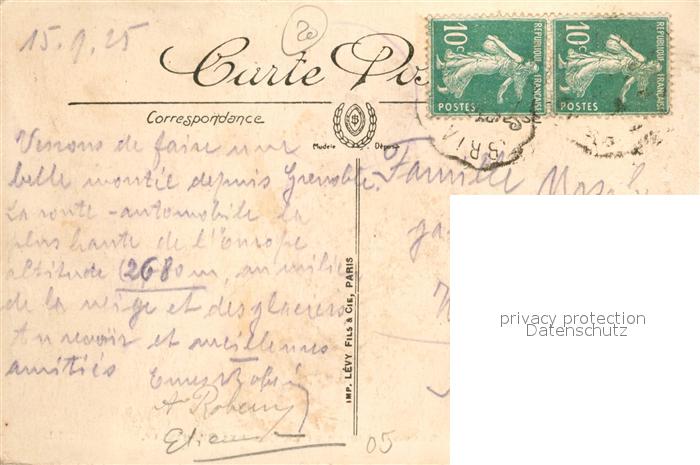 15.9.25
20
Carte Pos
Correspondance
Modèle Déposé
10c 10c
REPUBLIQUE FRANÇAISE REPUBLIQUE FRANÇAISE
POSTES POSTES
BRIA
Venons de faire une
belle montée depuis Grenoble.
La route-automobile la
plus haute de l'Europe
altitude (2680m, au milieu
de la neige et des glaciers
Au revoir et meilleures
amitiés
Etienne
Famille
IMP. LÉVY FILS & CIE, PARIS
05
privacy protection
Datenschutz